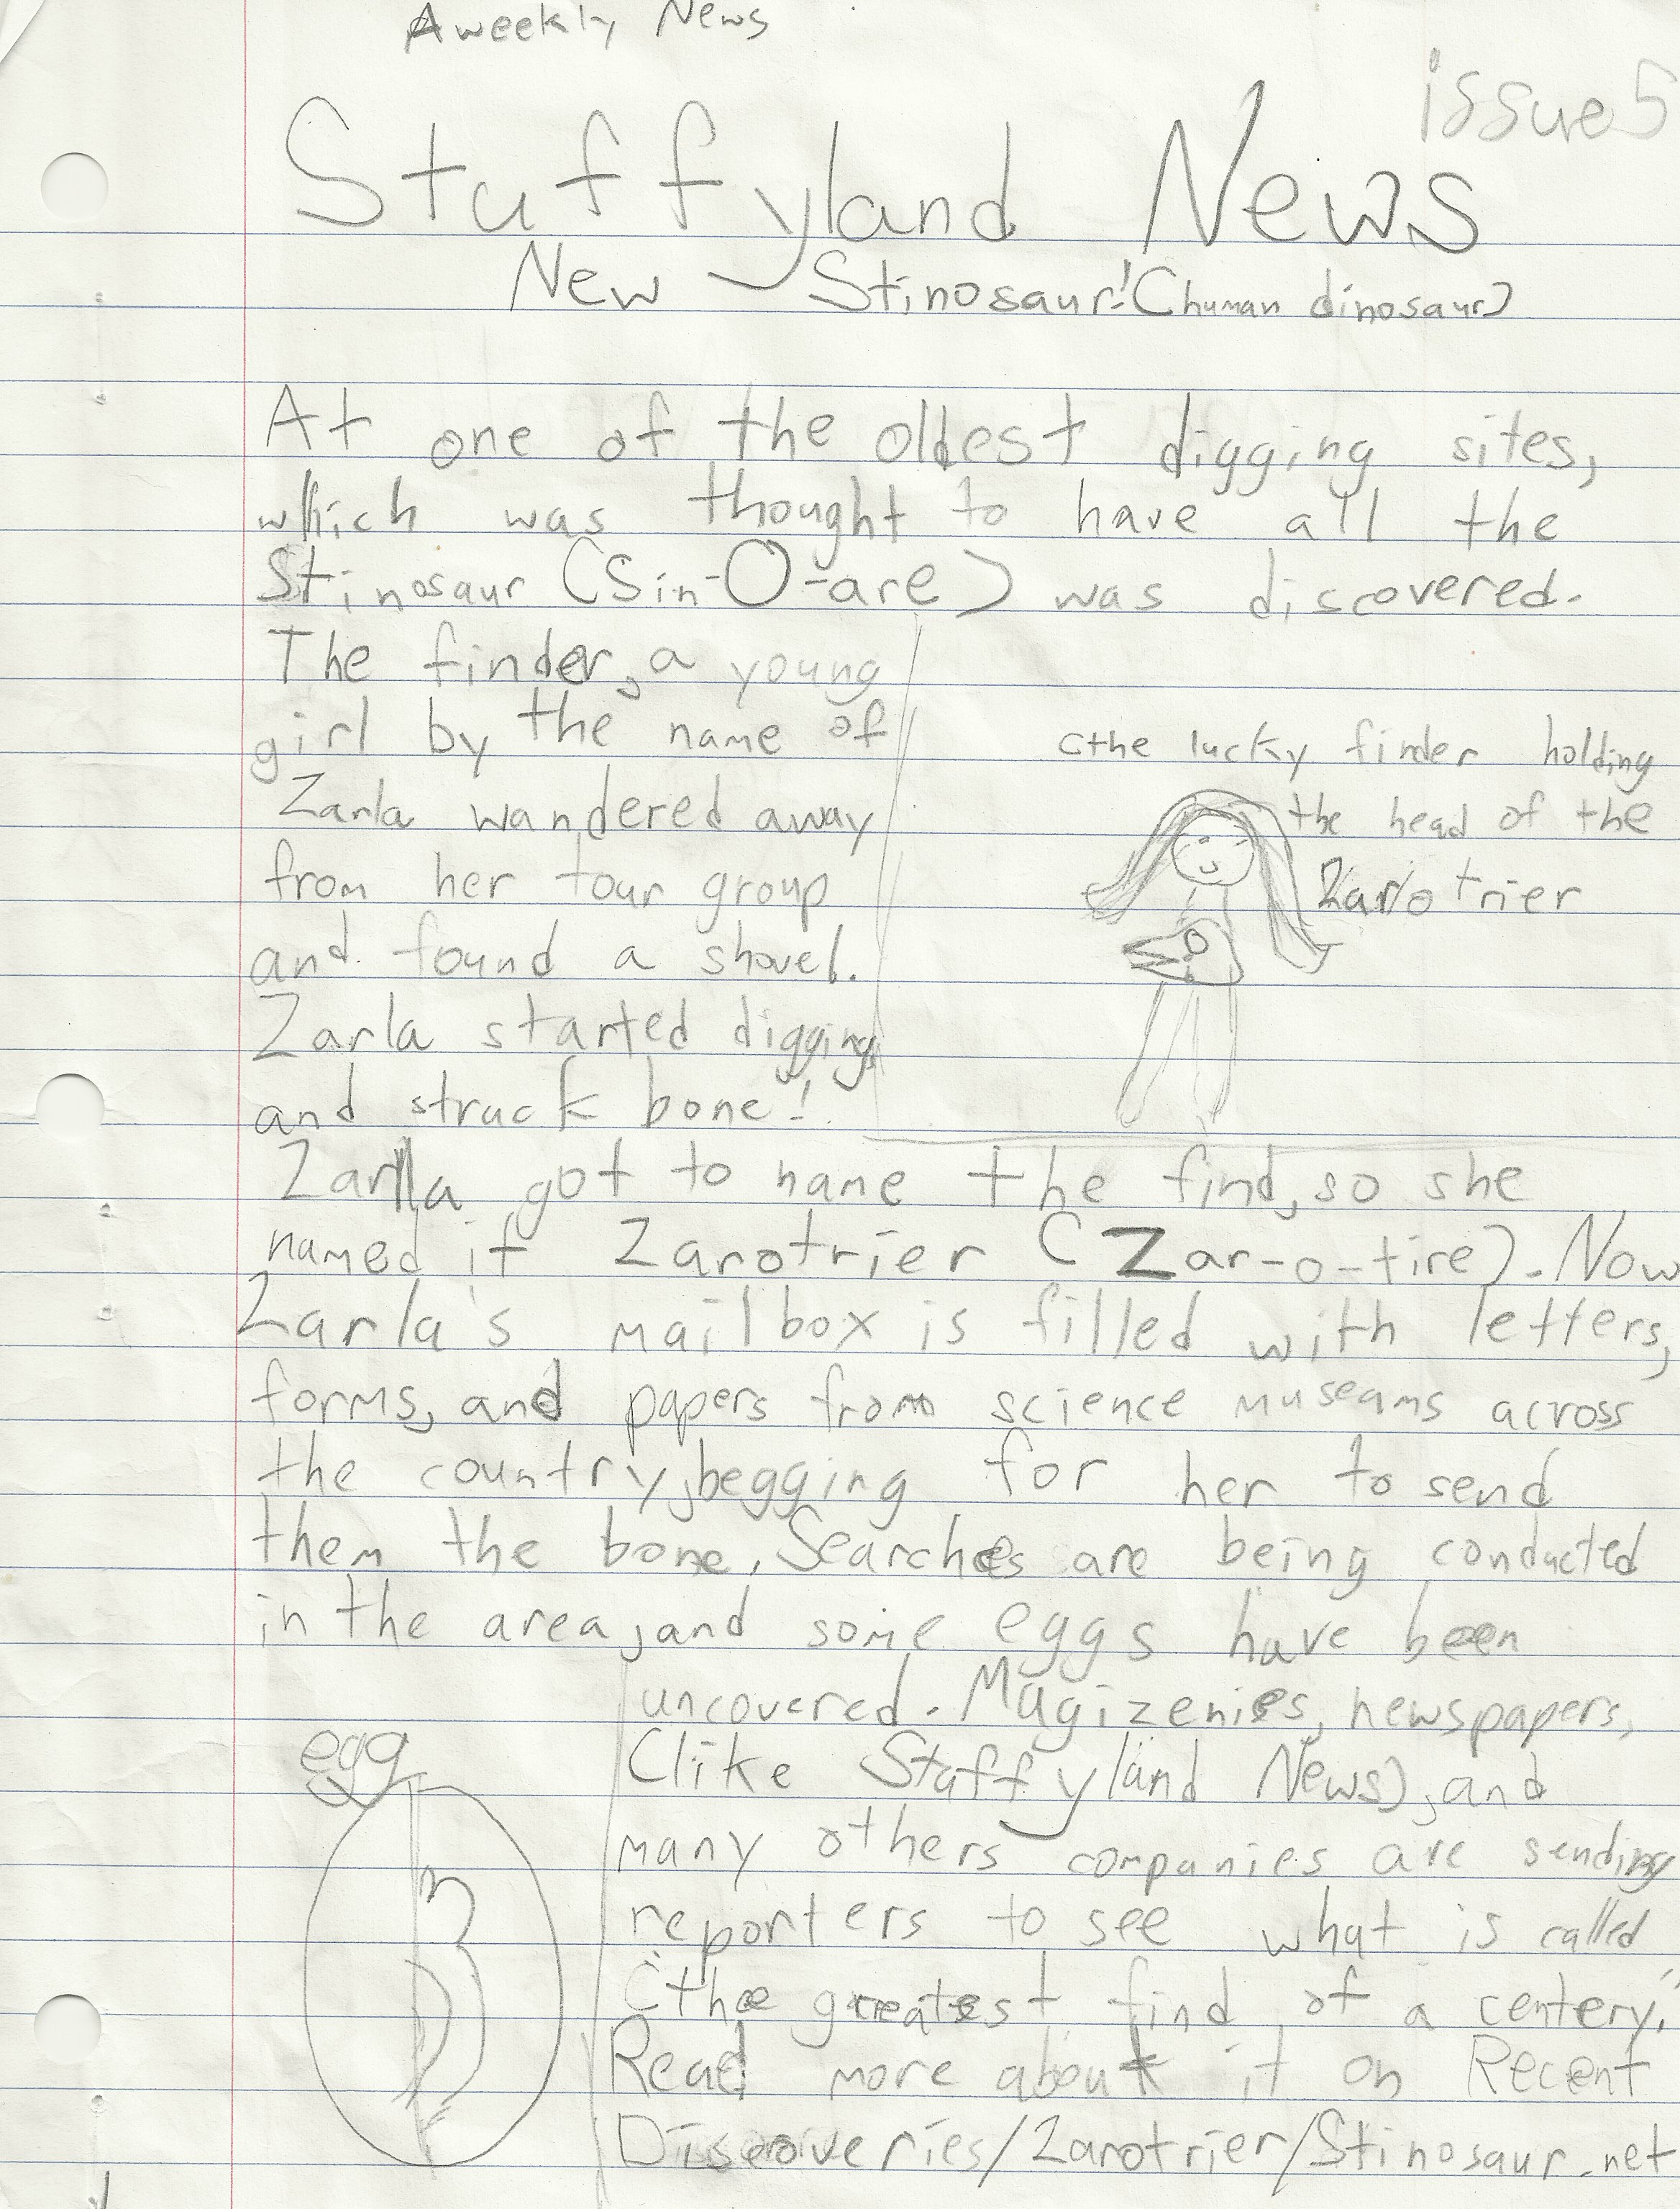 A weekly News
issue 5
Stuffyland News
New Stinosaur! (human dinosaur)
At one of the oldest digging sites,
which was thought to have all the
Stinosaur (Sin-O-are) was discovered.
The finder, a young
girl by the name of
Zarla wandered away
from her tour group
and found a shovel.
Zarla started digging
and struck bone!
(the lucky finder holding
the head of the
Zarotrier
Zarla got to name the find, so she
named it Zarotrier (Zar-o-tire). Now
Zarla's mailbox is filled with letters,
forms, and papers from science museams across
the country, begging for her to send
them the bone. Searches are being conducted
in the area, and some eggs have been
uncovered. Magizenies, newspapers,
(like Stuffyland News), and
many others companies are sending
reporters to see what is called
"the greatest find of a centery."
Read more about it on Recent
Discoveries/Zarotrier/Stinosaur.net
egg